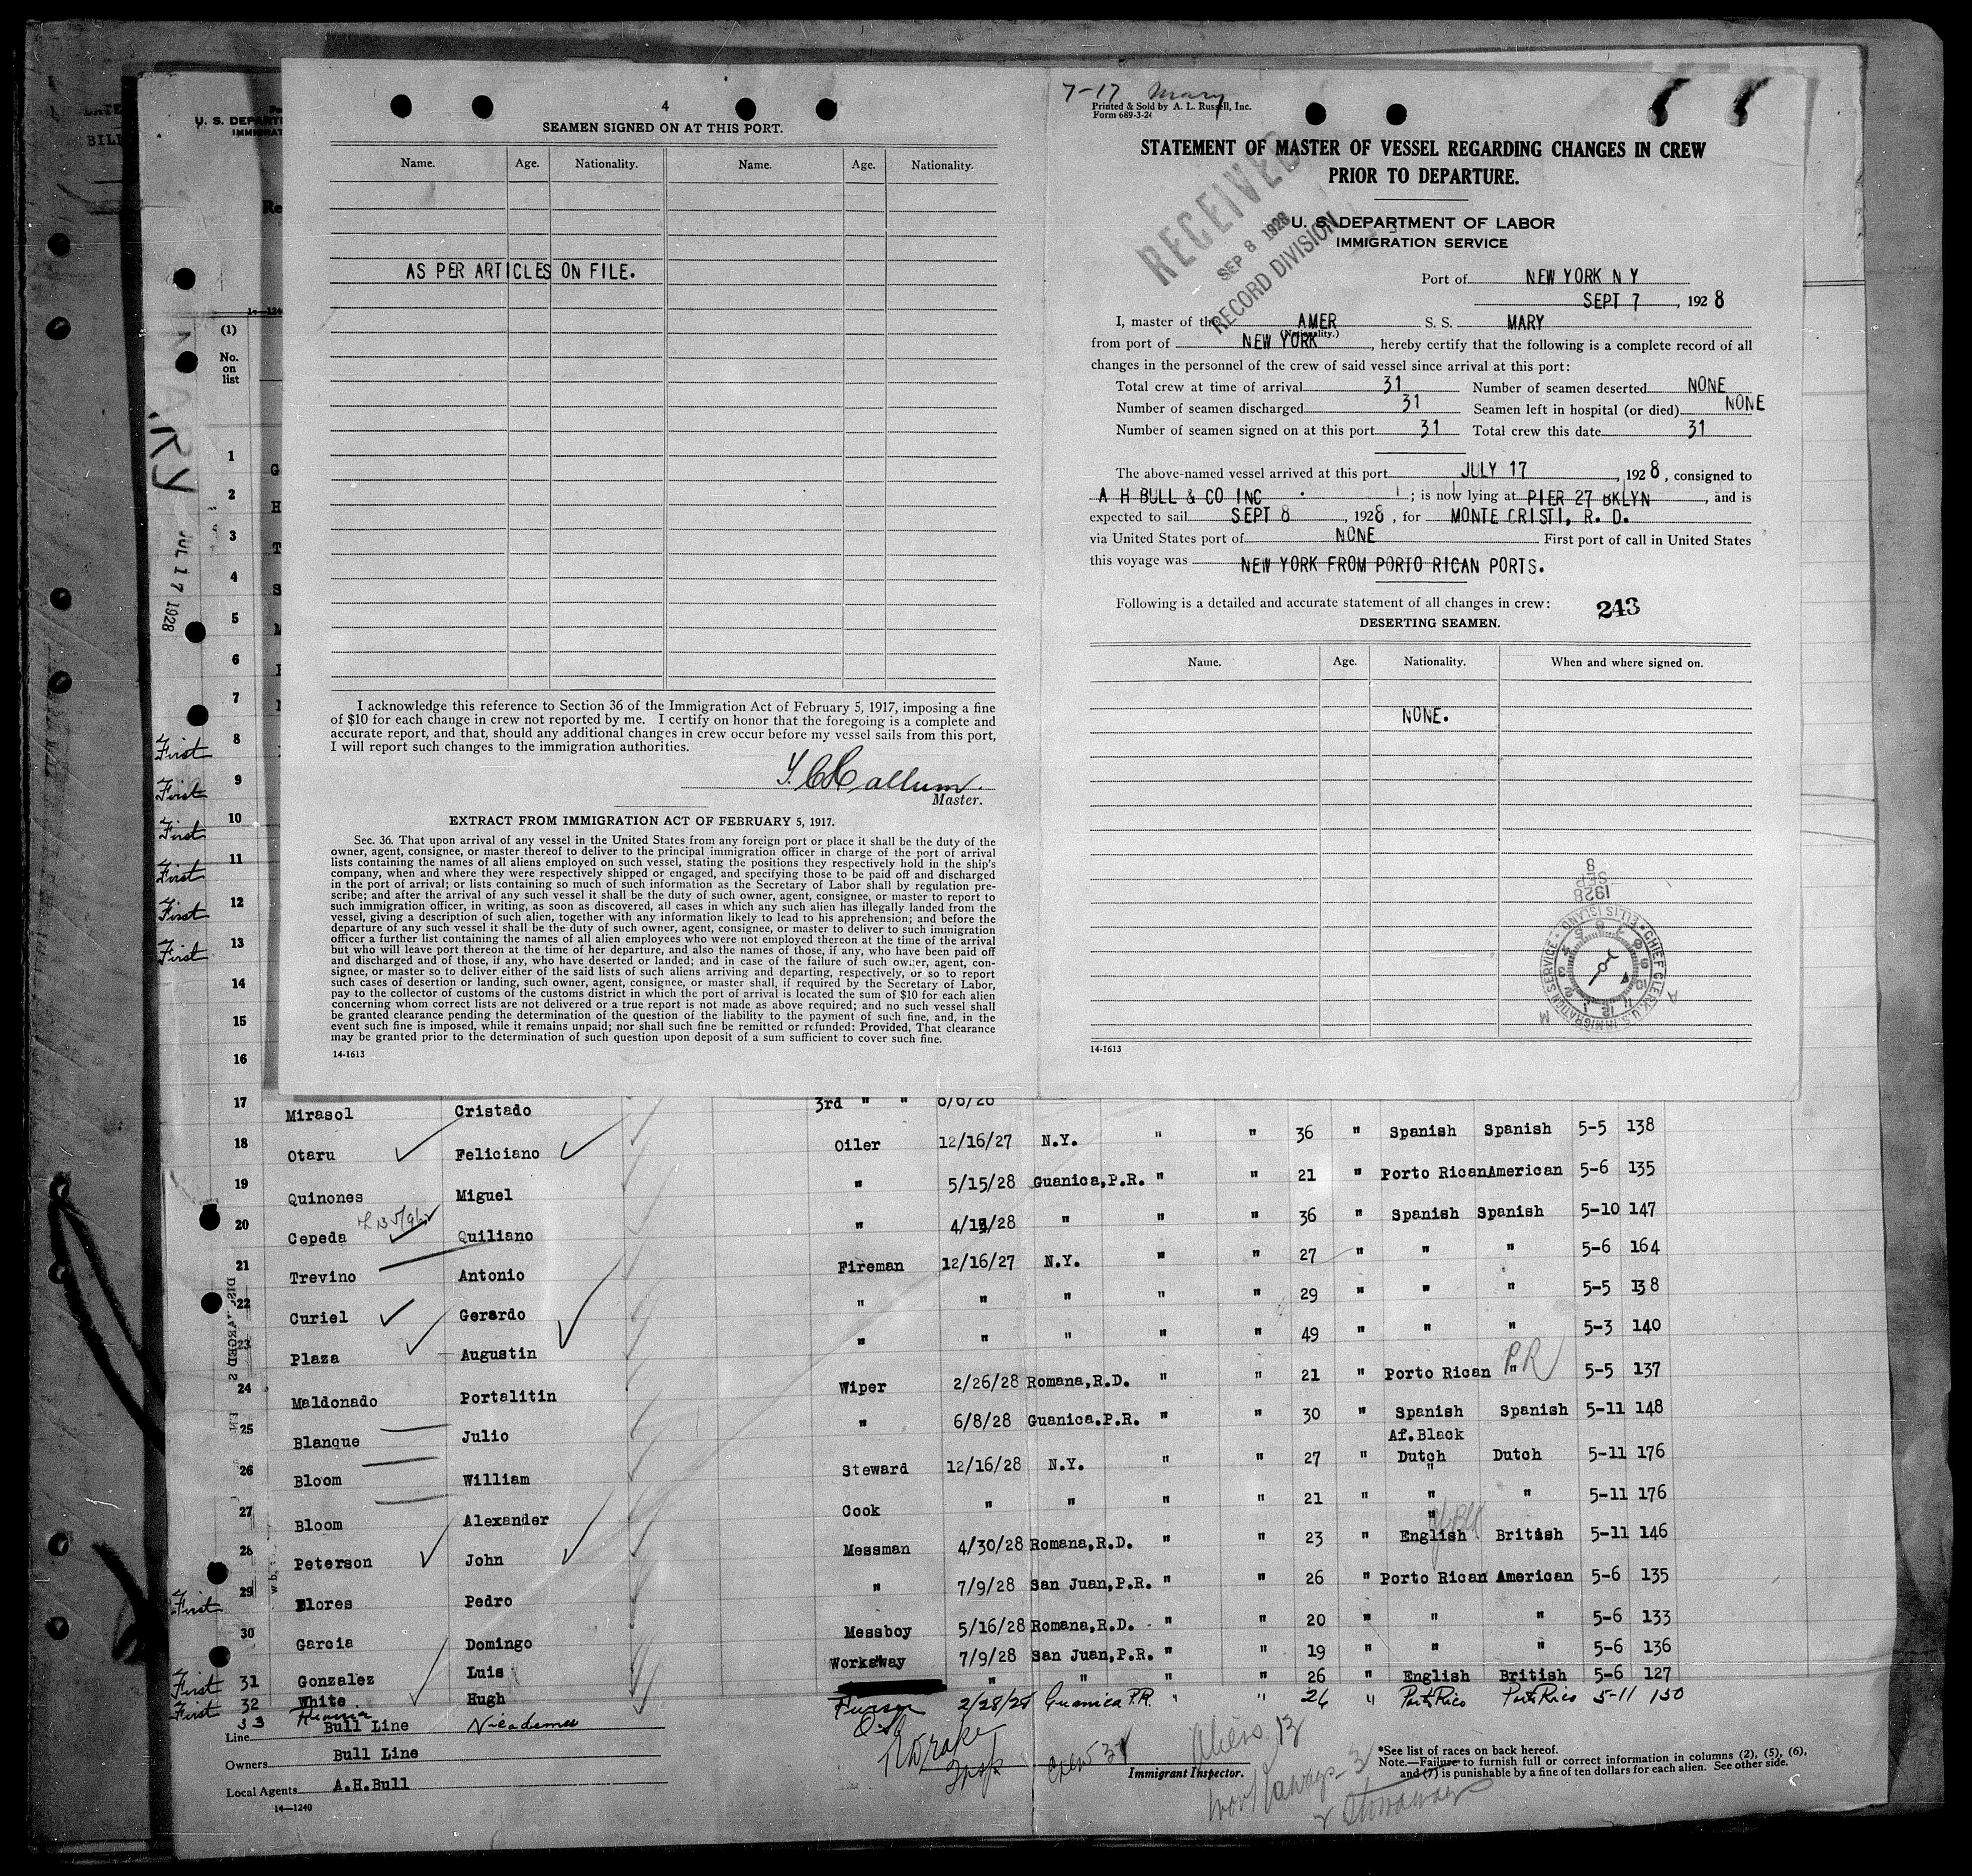 4
SEAMEN SIGNED ON AT THIS PORT.
Name. Age. Nationality. Name. Age. Nationality.
AS PER ARTICLES ON FILE.
I acknowledge this reference to Section 36 of the Immigration Act of February 5, 1917, imposing a fine
of $10 for each change in crew not reported by me. I certify on honor that the foregoing is a complete and
accurate report, and that, should any additional changes in crew occur before my vessel sails from this port,
I will report such changes to the immigration authorities.
Master.
EXTRACT FROM IMMIGRATION ACT OF FEBRUARY 5, 1917.
Sec. 36. That upon arrival of any vessel in the United States from any foreign port or place it shall be the duty of the
owner, agent, consignee, or master thereof to deliver to the principal immigration officer in charge of the port of arrival
lists containing the names of all aliens employed on such vessel, stating the positions they respectively hold in the ship's
company, when and where they were respectively shipped or engaged, and specifying those to be paid off and discharged
in the port of arrival; or lists containing so much of such information as the Secretary of Labor shall by regulation pre-
scribe; and after the arrival of any such vessel it shall be the duty of such owner, agent, consignee, or master to report to
such immigration officer, in writing, as soon as discovered, all cases in which any such alien has illegally landed from the
vessel, giving a description of such alien, together with any information likely to lead to his apprehension; and before the
departure of any such vessel it shall be the duty of such owner, agent, consignee, or master to deliver to such immigration
officer a further list containing the names of all alien employees who were not employed thereon at the time of the arrival
but who will leave port thereon at the time of her departure, and also the names of those, if any, who have been paid off
and discharged and of those, if any, who have deserted or landed; and in case of the failure of such owner, agent, con-
signee, or master so to deliver either of the said lists of such aliens arriving and departing, respectively, or so to report
such cases of desertion or landing, such owner, agent, consignee, or master shall, if required by the Secretary of Labor,
pay to the collector of customs of the customs district in which the port of arrival is located the sum of $10 for each alien
concerning whom correct lists are not delivered or a true report is not made as above required; and no such vessel shall
be granted clearance pending the determination of the question of the liability to the payment of such fine, and, in the
event such fine is imposed, while it remains unpaid; nor shall such fine be remitted or refunded: Provided, That clearance
may be granted prior to the determination of such question upon deposit of a sum sufficient to cover such fine.
14-1613
7-17 Mary
Printed & Sold by A. L. Russell, Inc.
Form 689-3-24
STATEMENT OF MASTER OF VESSEL REGARDING CHANGES IN CREW
PRIOR TO DEPARTURE.
RECEIVED
SEP 8 1928
RECORD DIVISION
U. S. DEPARTMENT OF LABOR
IMMIGRATION SERVICE
Port of NEW YORK N Y
SEPT 7, 1928
I, master of the AMER S. S. MARY
(Nationality.)
from port of NEW YORK, hereby certify that the following is a complete record of all
changes in the personnel of the crew of said vessel since arrival at this port:
Total crew at time of arrival 31 Number of seamen deserted NONE
Number of seamen discharged 31 Seamen left in hospital (or died) NONE
Number of seamen signed on at this port 31 Total crew this date 31
The above-named vessel arrived at this port JULY 17, 1928, consigned to
A H BULL & CO INC; is now lying at PIER 27 BKLYN, and is
expected to sail SEPT 8, 1928, for MONTE CRISTI, R. D.
via United States port of NONE First port of call in United States
this voyage was NEW YORK FROM PORTO RICAN PORTS.
Following is a detailed and accurate statement of all changes in crew: 243
DESERTING SEAMEN.
Name. Age. Nationality. When and where signed on.
NONE.
SEP 8 1928
CHIEF CLERK, U. S. IMMIGRATION SERVICE ELLIS ISLAND
14-1613
U. S. DEPART
IMMIGRAT
(1)
No.
on
list
JUL 17 1928
1
2
3
4
5
6
7
First 8
First 9
First 10
First 11
First 12
First 13
14
15
16
17 Mirasol Cristado 3rd " " 6/6/28
18 Otaru Feliciano Oiler 12/16/27 N.Y. " " 36 " Spanish Spanish 5-5 138
19 Quinones Miguel " 5/15/28 Guanica,P.R. " " 21 " Porto Rican American 5-6 135
20 Cepeda Quiliano " 4/15/28 " " " 36 " Spanish Spanish 5-10 147
21 Trevino Antonio Fireman 12/16/27 N.Y. " " 27 " " " 5-6 164
22 Curiel Gerardo " " " " " 29 " " " 5-5 138
23 Plaza Augustin " " " " " 49 " " " 5-3 140
24 Maldonado Portalitin Wiper 2/26/28 Romana,R.D. " " 21 " Porto Rican " PR 5-5 137
25 Blanque Julio " 6/8/28 Guanica.P.R. " " 30 " Spanish Spanish 5-11 148
26 Bloom William Steward 12/16/28 N.Y. " " 27 " Af.Black Dutch Dutch 5-11 176
27 Bloom Alexander Cook " " " " 21 " " " 5-11 176
28 Peterson John Messman 4/30/28 Romana,R.D. " " 23 " English British 5-11 146
First 29 Flores Pedro " 7/9/28 San Juan,P.R. " " 26 " Porto Rican American 5-6 135
30 Garcia Domingo Messboy 5/16/28 Romana,R.D. " " 20 " " " 5-6 133
First 31 Gonzalez Luis Workaway 7/9/28 San Juan,P.R. " " 19 " " " 5-6 136
First 32 White Hugh " " " " 26 " English British 5-6 127
33 Nicademus 2/28/28 Guanica P.R. " " 26 " Porto Rico Porto Rico 5-11 150
Line Bull Line
Owners Bull Line
Local Agents A.H.Bull
14—1240
Immigrant Inspector.
Aliens 13
Workaways-3
Stowaways
*See list of races on back hereof.
Note.—Failure to furnish full or correct information in columns (2), (5), (6),
and (7) is punishable by a fine of ten dollars for each alien. See other side.